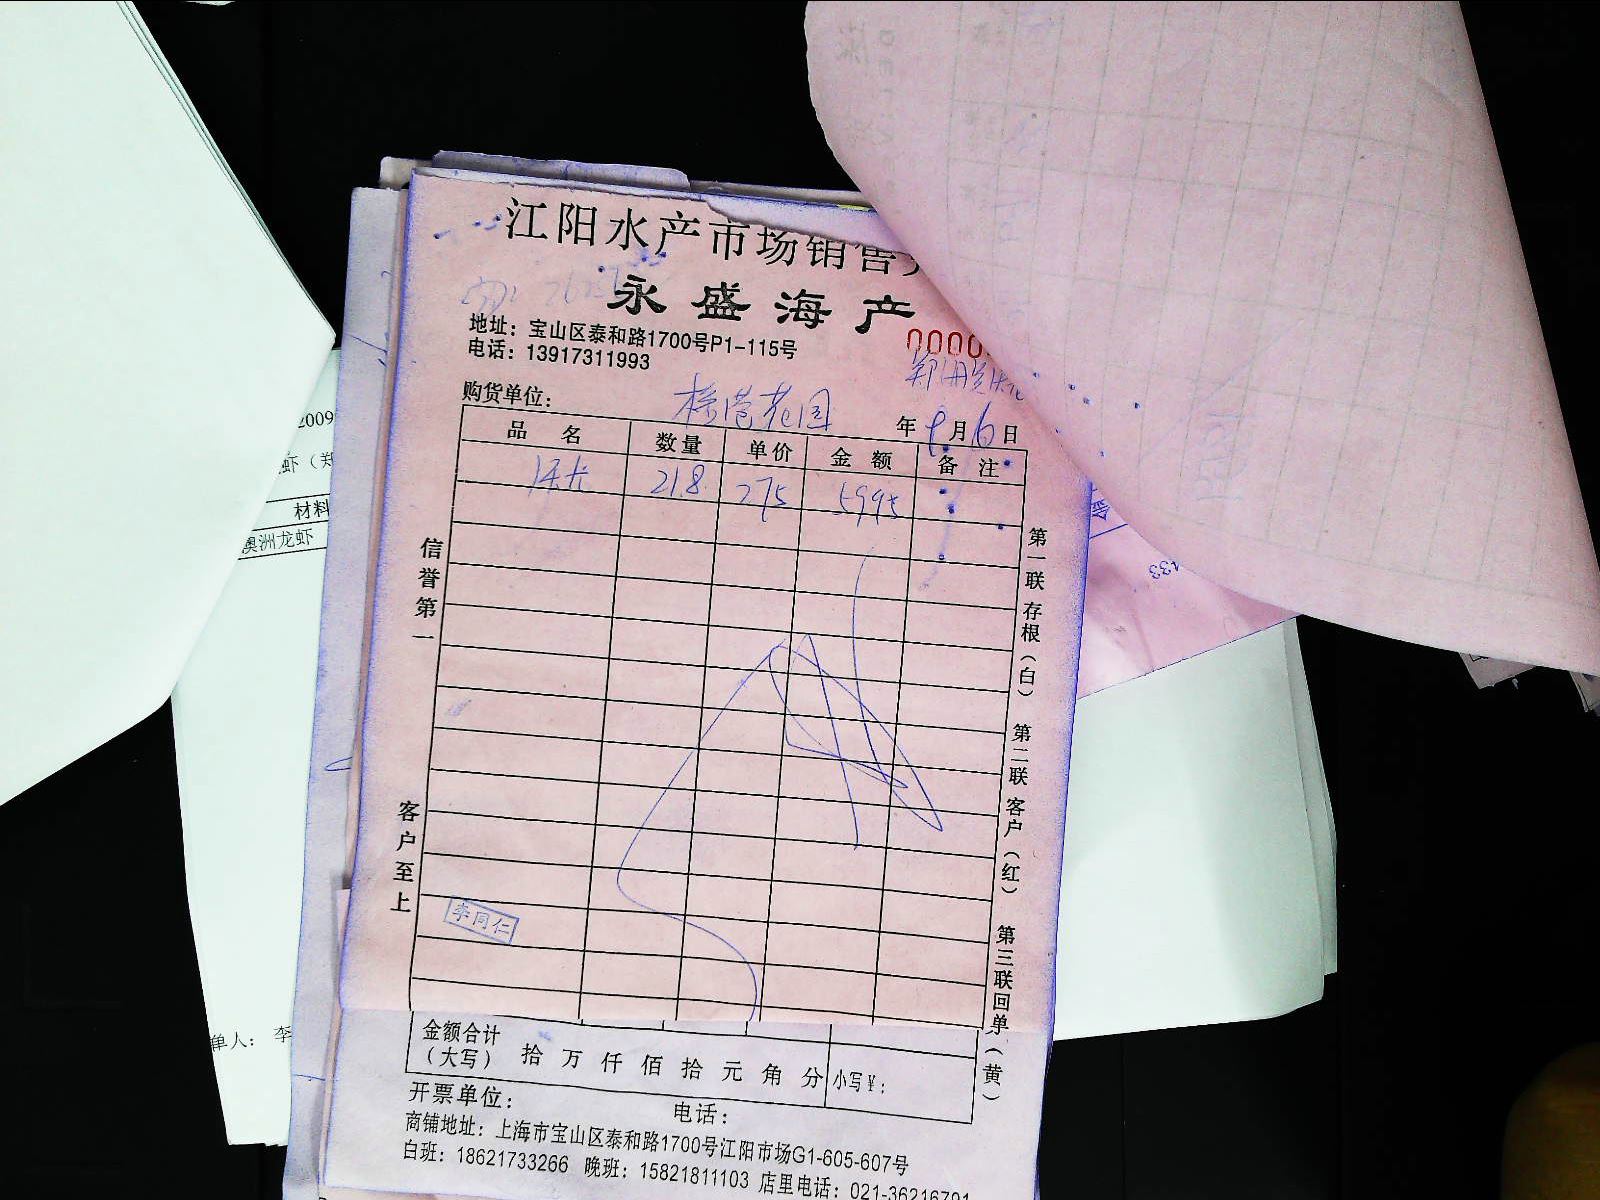 江阳水产市场销售
永盛海产
地址：宝山区泰和路1700号P1-115号
电话：13917311993
0000
购货单位：
花园
年 9月6日
品名 数量 单价 金额 备注
21.8 275 5995
信誉第一
客户至上
第一联存根（白）
第二联客户（红）
第三联回单（黄）
李同仁
金额合计
（大写） 拾 万 仟 佰 拾 元 角 分 小写￥：
开票单位： 电话：
商铺地址：上海市宝山区泰和路1700号江阳市场G1-605-607号
白班：18621733266 晚班：15821811103 店里电话：021-36216791
2009
虾（郑
材料
澳洲龙虾
单人： 李
133